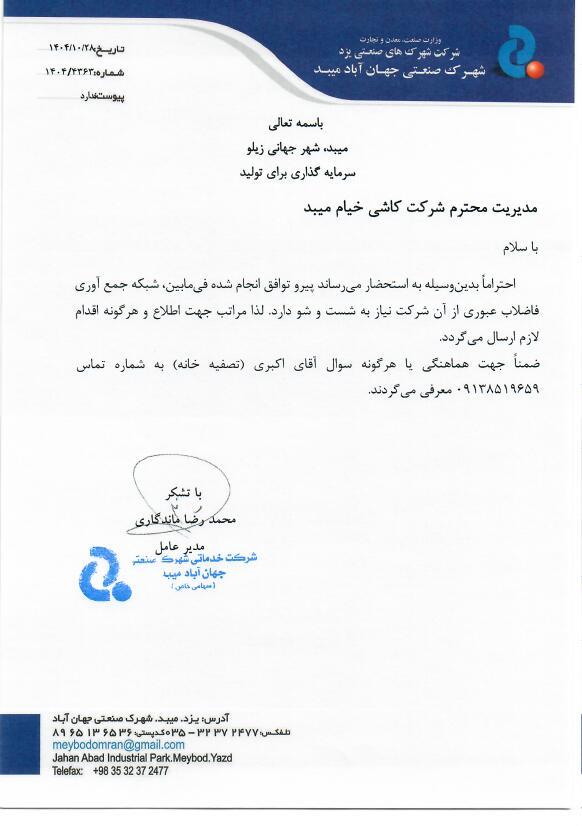 وزارت صنعت، معدن و تجارت
شرکت شهرک های صنعتی یزد
شهرک صنعتی جهان آباد میبد
تاریخ:۱۴۰۴/۱۰/۲۸
شماره:۱۴۰۴/۴۳۶۳
پیوست:ندارد
باسمه تعالی
میبد، شهر جهانی زیلو
سرمایه گذاری برای تولید
مدیریت محترم شرکت کاشی خیام میبد
با سلام
احتراماً بدین‌وسیله به استحضار می‌رساند پیرو توافق انجام شده فی‌مابین، شبکه جمع آوری
فاضلاب عبوری از آن شرکت نیاز به شست و شو دارد. لذا مراتب جهت اطلاع و هرگونه اقدام
لازم ارسال می‌گردد.
ضمناً جهت هماهنگی یا هرگونه سوال آقای اکبری (تصفیه خانه) به شماره تماس
۰۹۱۳۸۵۱۹۶۵۹ معرفی می‌گردند.
با تشکر
محمد رضا ماندگاری
مدیر عامل
شرکت خدماتی شهرک صنعتی
جهان آباد میبد
(سهامی خاص)
آدرس: یزد. میبد. شهرک صنعتی جهان آباد
تلفکس: ۳۲۳۷۲۴۷۷ - ۰۳۵ کدپستی: ۸۹۶۵۱۳۶۵۳۶
meybodomran@gmail.com
Jahan Abad Industrial Park.Meybod.Yazd
Telefax: +98 35 32 37 2477